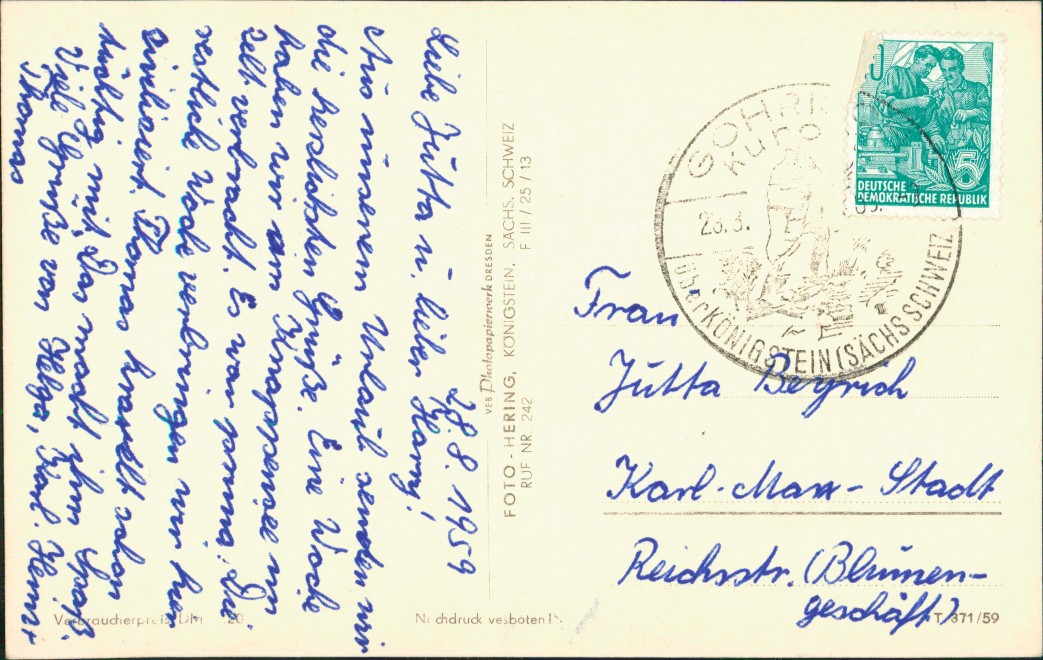 28.8.1959
Liebe Jutta u. lieber Harry!
Aus unserem Urlaub senden wir
die herzlichsten Grüße. Eine Woche
haben wir am Knappensee im
Zelt verbracht. Es war prima. Die
restliche Woche verbringen wir hier
zivilisiert. Thomas krault schon
tüchtig mit, das macht ihm Spaß.
Viele Grüße von Helga, Karl-Heinz
Thomas
VEB Photopapierwerk DRESDEN
FOTO - HERING, KÖNIGSTEIN, SÄCHS. SCHWEIZ
RUF NR. 242 F III / 25 / 13
DEUTSCHE
DEMOKRATISCHE REPUBLIK
5
über KÖNIGSTEIN (SÄCHS SCHWEIZ)
Frau
Jutta Beyrich
Karl-Marx-Stadt
Reichsstr. (Blumen-
geschäft)
Verbraucherpreis DM 20
Nachdruck verboten!
T 371/59